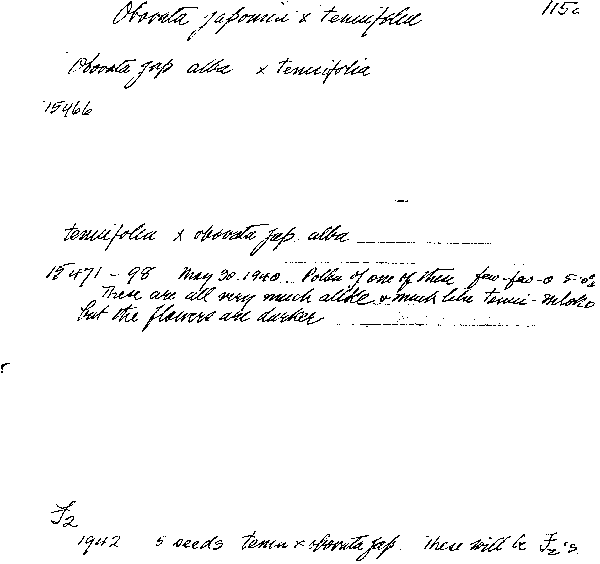 Obovata japonica x tenuifolia 115a
Obovata jap alba x tenuifolia
15466
tenuifolia x obovata jap. alba
15471 - 98 May 30. 1940 Pollen of one of these few-few-0 5-0%
These are all very much alike & much like tenui-mloko
but the flowers are darker
F2
1942 5 seeds tenui x obovata jap. These will be F2's